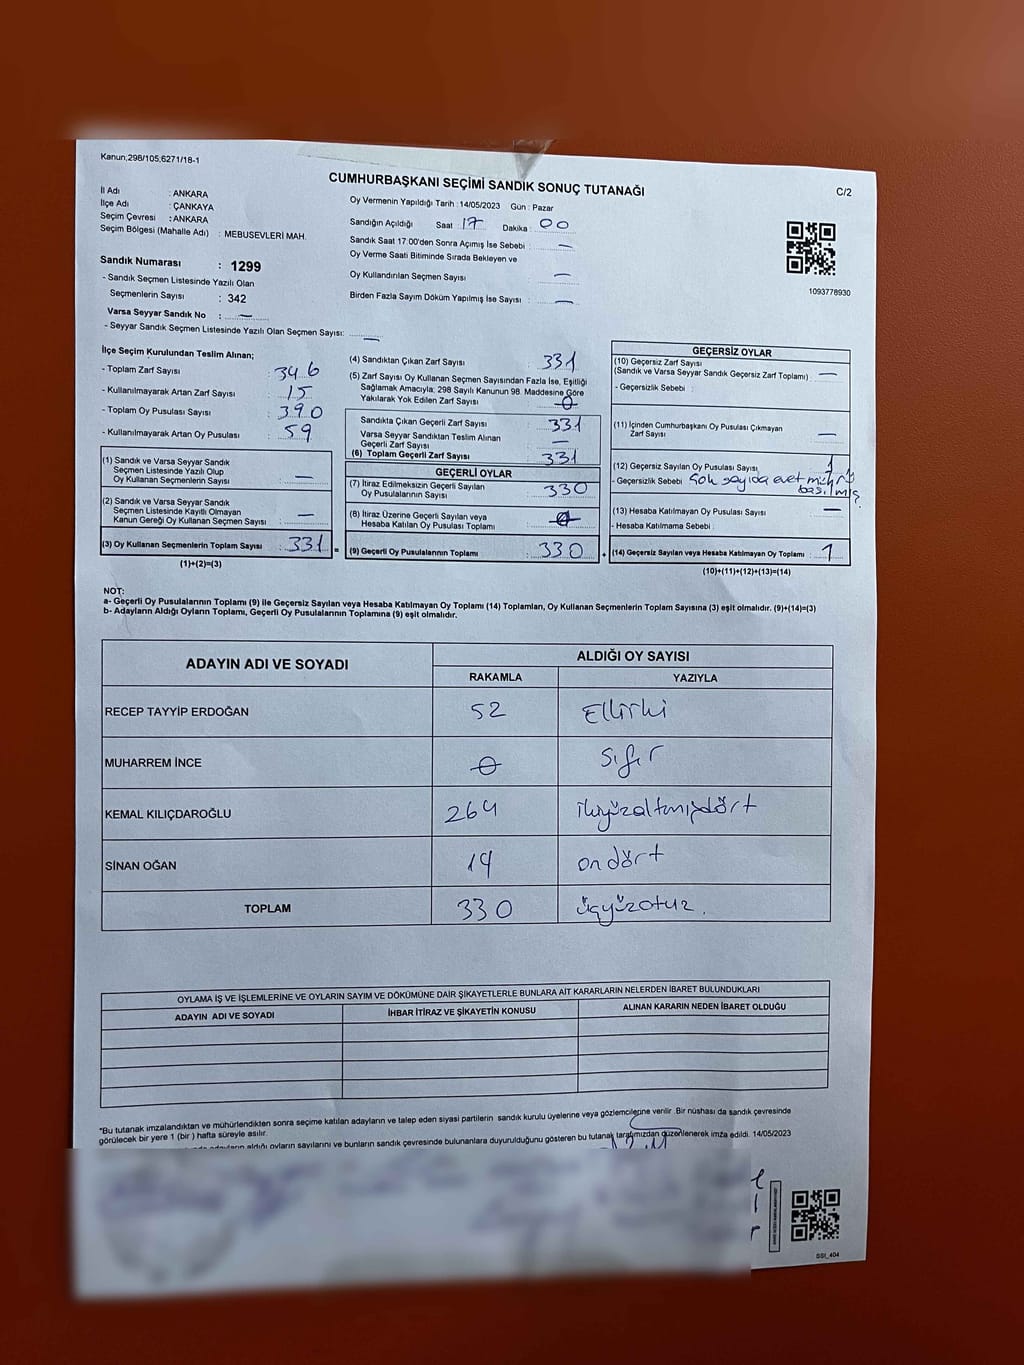 Kanun;298/105;6271/18-1
CUMHURBAŞKANI SEÇİMİ SANDIK SONUÇ TUTANAĞI
C/2
İl Adı : ANKARA
İlçe Adı : ÇANKAYA
Seçim Çevresi : ANKARA
Seçim Bölgesi (Mahalle Adı) : MEBUSEVLERİ MAH.
Sandık Numarası : 1299
- Sandık Seçmen Listesinde Yazılı Olan
Seçmenlerin Sayısı : 342
Varsa Seyyar Sandık No : —
- Seyyar Sandık Seçmen Listesinde Yazılı Olan Seçmen Sayısı: —
Oy Vermenin Yapıldığı Tarih : 14/05/2023 Gün : Pazar
Sandığın Açıldığı Saat : 17 Dakika : 00
Sandık Saat 17.00'den Sonra Açımış İse Sebebi : —
Oy Verme Saati Bitiminde Sırada Bekleyen ve
Oy Kullandırılan Seçmen Sayısı —
Birden Fazla Sayım Döküm Yapılmış İse Sayısı : —
1093778930
İlçe Seçim Kurulundan Teslim Alınan;
- Toplam Zarf Sayısı : 346
- Kullanılmayarak Artan Zarf Sayısı : 15
- Toplam Oy Pusulası Sayısı : 390
- Kullanılmayarak Artan Oy Pusulası : 59
(1) Sandık ve Varsa Seyyar Sandık
Seçmen Listesinde Yazılı Olup
Oy Kullanan Seçmenlerin Sayısı : —
(2) Sandık ve Varsa Seyyar Sandık
Seçmen Listesinde Kayıtlı Olmayan
Kanun Gereği Oy Kullanan Seçmen Sayısı : —
(3) Oy Kullanan Seçmenlerin Toplam Sayısı : 331 =
(1)+(2)=(3)
(4) Sandıktan Çıkan Zarf Sayısı : 331
(5) Zarf Sayısı Oy Kullanan Seçmen Sayısından Fazla İse, Eşitliği
Sağlamak Amacıyla; 298 Sayılı Kanunun 98. Maddesine Göre
Yakılarak Yok Edilen Zarf Sayısı : 0
Sandıkta Çıkan Geçerli Zarf Sayısı : 331
Varsa Seyyar Sandıktan Teslim Alınan
Geçerli Zarf Sayısı : —
(6) Toplam Geçerli Zarf Sayısı : 331
GEÇERLİ OYLAR
(7) İtiraz Edilmeksizin Geçerli Sayılan
Oy Pusulalarının Sayısı : 330
(8) İtiraz Üzerine Geçerli Sayılan veya
Hesaba Katılan Oy Pusulası Toplamı : 0
(9) Geçerli Oy Pusulalarının Toplamı : 330 +
GEÇERSİZ OYLAR
(10) Geçersiz Zarf Sayısı
(Sandık ve Varsa Seyyar Sandık Geçersiz Zarf Toplamı) : —
- Geçersizlik Sebebi :
(11) İçinden Cumhurbaşkanı Oy Pusulası Çıkmayan
Zarf Sayısı : —
(12) Geçersiz Sayılan Oy Pusulası Sayısı : 1
- Geçersizlik Sebebi : Çok sayıda evet mührü
basılmış.
(13) Hesaba Katılmayan Oy Pusulası Sayısı : —
- Hesaba Katılmama Sebebi :
(14) Geçersiz Sayılan veya Hesaba Katılmayan Oy Toplamı : 1
(10)+(11)+(12)+(13)=(14)
NOT:
a- Geçerli Oy Pusulalarının Toplamı (9) ile Geçersiz Sayılan veya Hesaba Katılmayan Oy Toplamı (14) Toplamları, Oy Kullanan Seçmenlerin Toplam Sayısına (3) eşit olmalıdır. (9)+(14)=(3)
b- Adayların Aldığı Oyların Toplamı, Geçerli Oy Pusulalarının Toplamına (9) eşit olmalıdır.
ADAYIN ADI VE SOYADI
ALDIĞI OY SAYISI
RAKAMLA YAZIYLA
RECEP TAYYİP ERDOĞAN 52 Elliiki
MUHARREM İNCE 0 Sıfır
KEMAL KILIÇDAROĞLU 264 ikiyüzaltmışdört
SİNAN OĞAN 14 ondört
TOPLAM 330 üçyüzotuz.
OYLAMA İŞ VE İŞLEMLERİNE VE OYLARIN SAYIM VE DÖKÜMÜNE DAİR ŞİKAYETLERLE BUNLARA AİT KARARLARIN NELERDEN İBARET BULUNDUKLARI
ADAYIN ADI VE SOYADI İHBAR İTİRAZ VE ŞİKAYETİN KONUSU ALINAN KARARIN NEDEN İBARET OLDUĞU
"Bu tutanak imzalandıktan ve mühürlendikten sonra seçime katılan adayların ve talep eden siyasi partilerin sandık kurulu üyelerine veya gözlemcilerine verilir .Bir nüshası da sandık çevresinde
görülecek bir yere 1 (bir ) hafta süreyle asılır.
aldığı oyların sayılarını ve bunların sandık çevresinde bulunanlara duyurulduğunu gösteren bu tutanak tarafımızdan düzenlenerek imza edildi. 14/05/2023
SSI_404